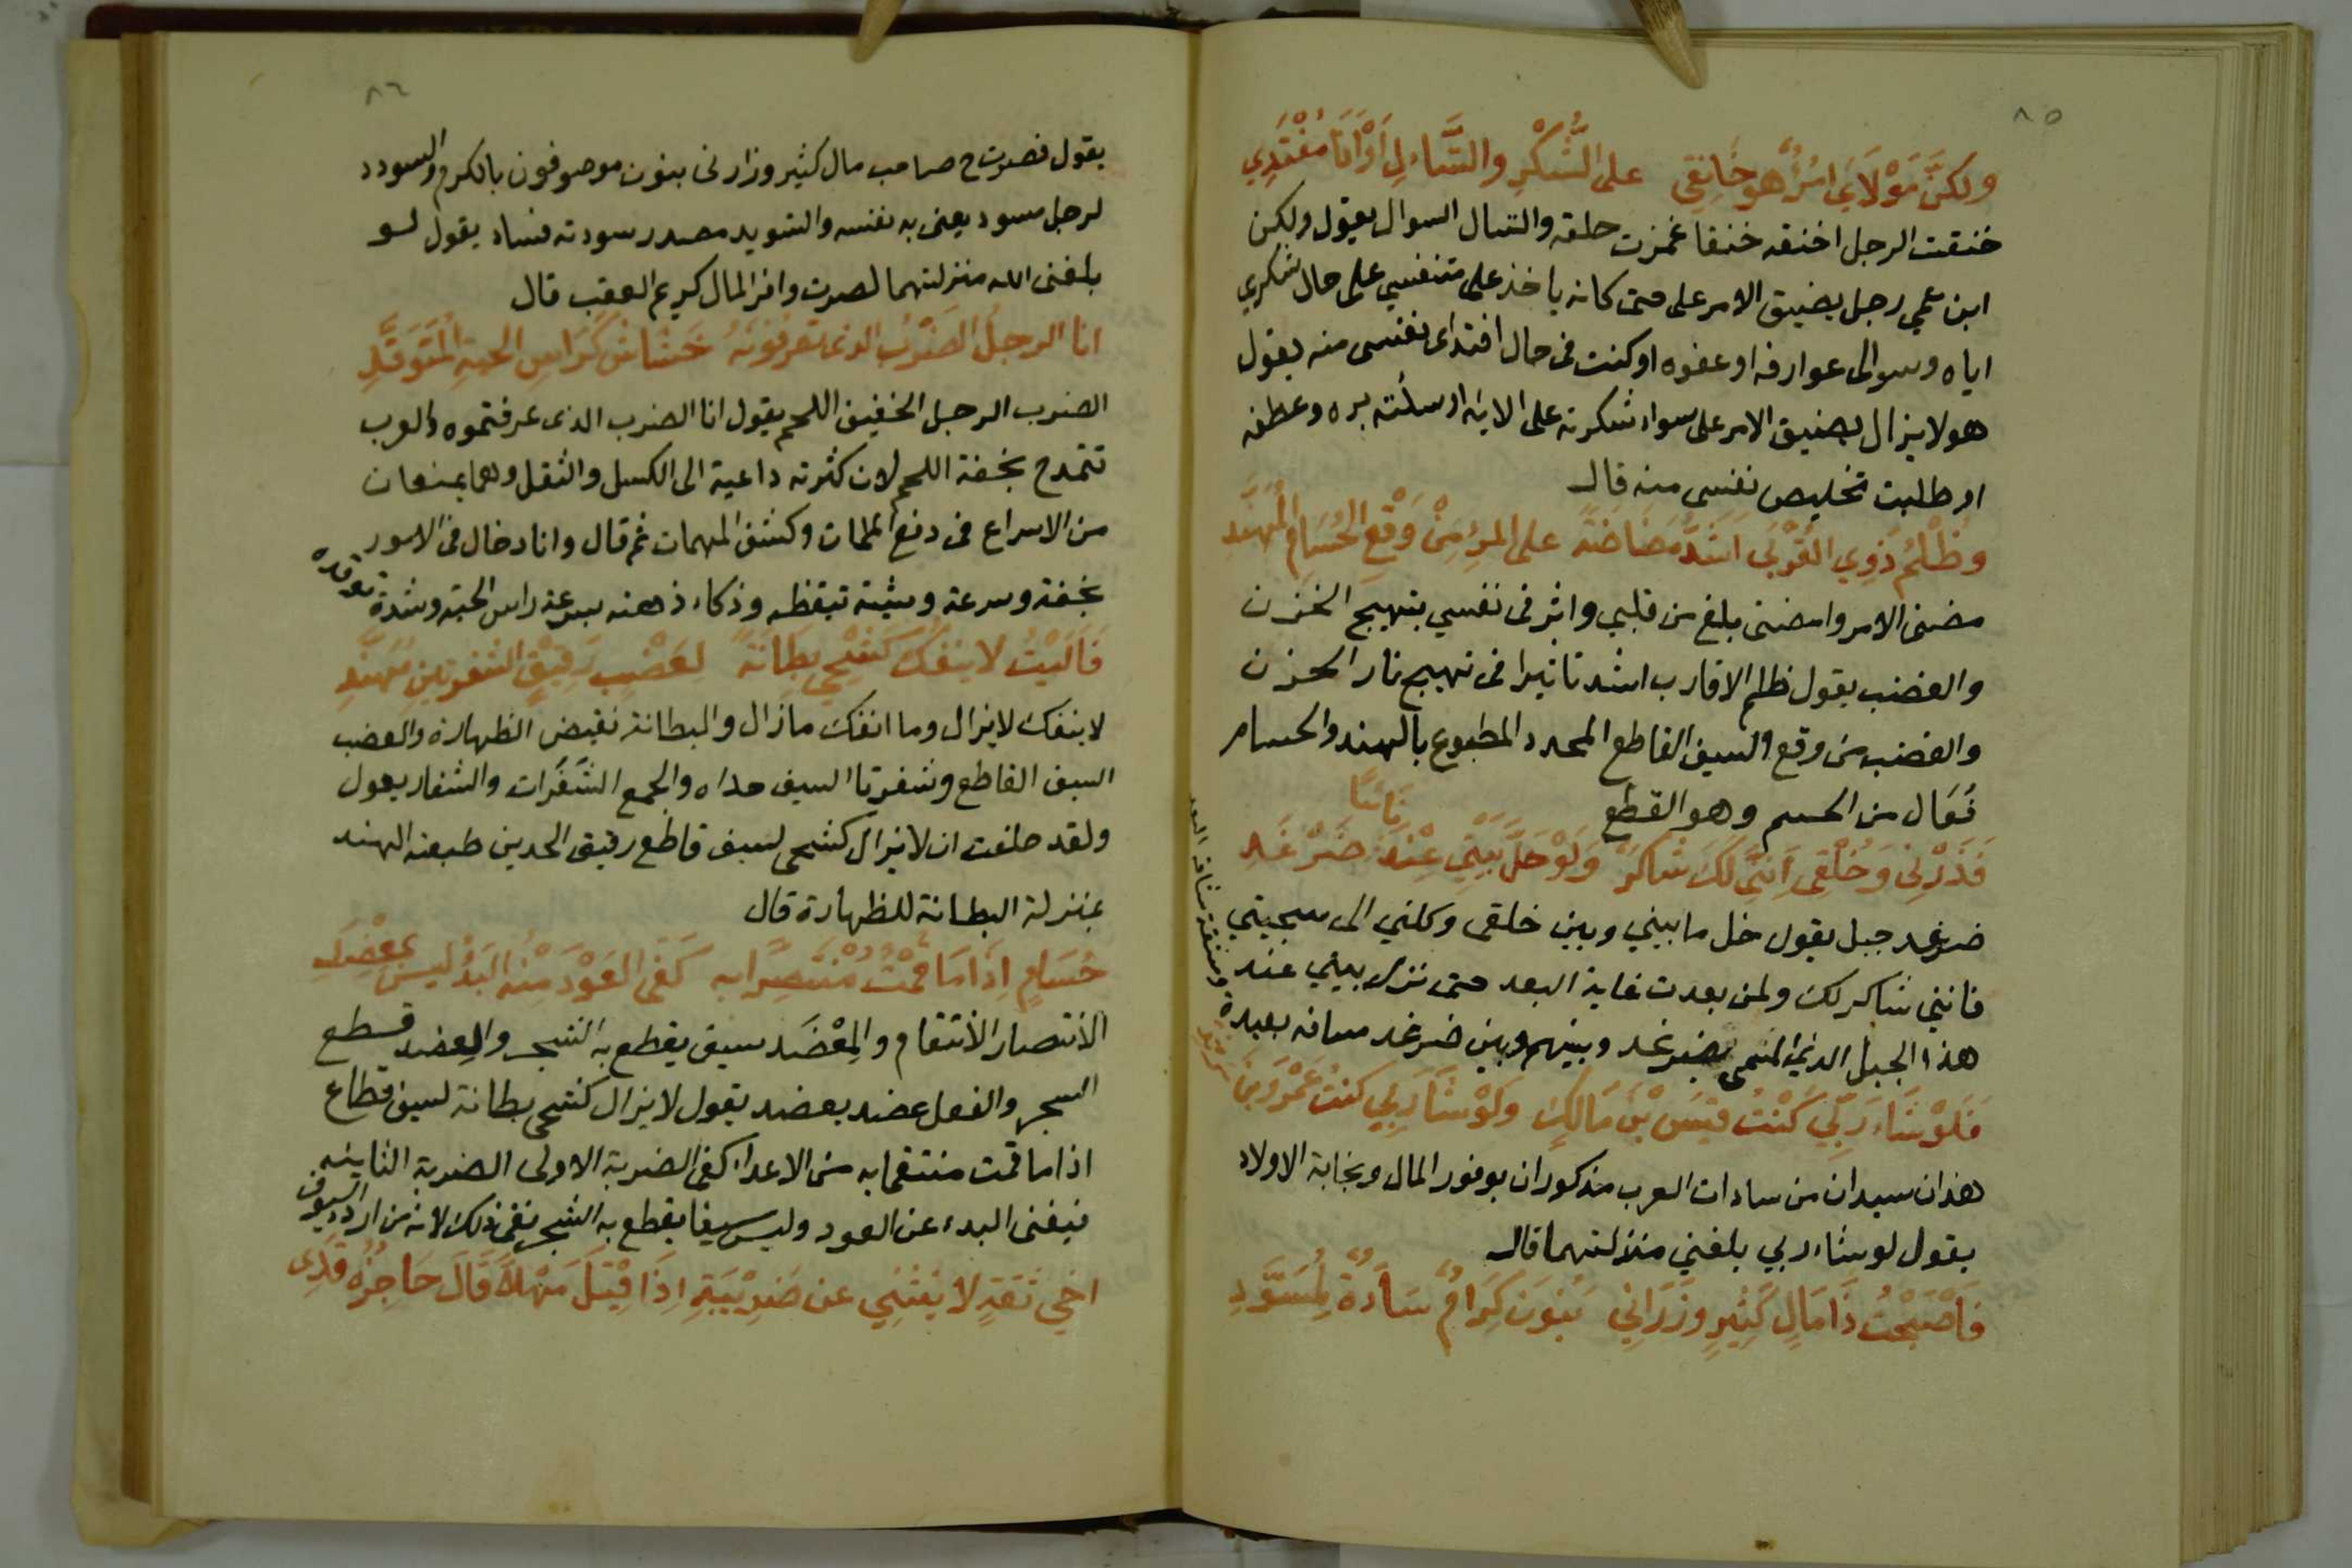 ٨٥
ولكنَّ مَوْلَايَ امْرُؤٌ هو خَانِقِي على الشُّكْرِ والتَّسَاءلِ اَوْاَنَا مُفْتَدِي
خنقت الرجل اخنقه خنقا غمزت حلقه والتسال السوال يقول ولكن
ابن عمي رجل يضيق الامر على حتى كانه ياخذ على متنفسي على حال شكري
اياه وسوالى عوارفه او عفوه او كنت فى حال افتداى نفسى منه يقول
هو لا يزال يضيق الامر على سواء شكرته على الايه او سئلته بره وعطفه
او طلبت تخليص نفسى منه قال
وظُلْمُ ذَوِي القُرْبَى اشَدُّ مَضَاضَةً على المرْءِ مِنْ وَقْعِ الحُسَامِ المُهَنَّدِ
مضنى الامر وامضنى بلغ من قلبي واثر فى نفسي بتهييج الحزن
والغضب يقول ظلم الاقارب اشد تاثيرا فى تهييج نار الحزن
والغضب من وقع السيف القاطع المحدد المطبوع بالهند والحسام
فُعَال من الحسم وهو القطع
نَائِيًا
فَذَرْنِى وَخُلْقِى اِنَّنِى لَكَ شَاكِرٌ وَلَوْ حَلَّ بَيْتِي عِنْدَ ضَرْغَدِ
ضرغد جبل يقول خل ما بيني وبين خلقى وكلني الى سجيتي
فانني شاكر لك ولمن بعدت غاية البعد حتى نزل بيتي عند
هذا الجبل الذي المسمى بضرغد وبينهم وبين ضرغد مسافه بعيدة
فَلَوْ شَاءَ رَبِّي كُنْتُ قَيْسَ بْنَ مَالِكٍ وَلَوْ شَاءَ رَبِّي كُنْتُ عَمْرَو بْنَ مَرْثَدِ
هذان سيدان من سادات العرب مذكوران بوفور المال ونجابة الاولاد
يقول لو شاء ربي بلغني منزلتهما قال
فَاَصْبَحْتُ ذَا مَالٍ كَثِيرٍ وزَارَانِي بَنُونَ كِرَامٌ سَادَةٌ لِمُسَوَّدِ
٨٦
يقول فصرت ح صاحب مال كثير وزارنى بنون موصوفون بالكرم والسودد
لرجل مسود يعنى به نفسه والتسويد مصدر سودته فساد يقول لو
بلغنى الله منزلتهما لصرت وافر المال كريم العقب قال
انا الرجلُ الضَرْبُ الذى تعرفونَهُ خَشَاشٌ كَرَاسِ الحيةِ المُتَوَقِّدِ
الضرب الرجل الخفيف اللحم يقول انا الضرب الذى عرفتموه والعرب
تتمدح بخفة اللحم لان كثرته داعية الى الكسل والثقل وهما يمنعان
من الاسراع فى دفع الملمات وكشف المهمات ثم قال وانا دخال فى الامور
بخفة وسرعة وشبه تيقظه وذكاء ذهنه بسرعة راس الحية وشدة توقده
فَآلَيْتُ لا يَنْفَكُّ كَشْحِي بِطَانَةً لِعَضْبٍ رَقِيْقِ الشفرتين مُهَنَّدِ
لا ينفك لا يزال وما انفك ما زال والبطانة نقيض الظهارة والعضب
السيف القاطع وشفرتا السيف حداه والجمع الشَفَرات والشفار يقول
ولقد حلفت ان لا يزال كشحى لسيف قاطع رقيق الحدين طبعته الهند
بمنزلة البطانة للظهارة قال
حُسَامٍ اِذَا مَا قُمْتُ مُنْتَصِرًا به كَفَى العَوْدَ مِنْهُ البَدْءُ ليس بمِعْضَدِ
الانتصار الانتقام والمِعْضَد سيف يقطع به الشجر والعضد قطع
الشجر والفعل عضد يعضد يقول لا يزال كشحى بطانة لسيف قطاع
اذا ما قمت منتقما به من الاعداء كفى الضربة الاولى الضربة الثانيه
فيغنى البدء عن العود وليس سيفا يقطع به الشجر نفى ذلك لانه من اردء السيوف
اخي ثقةٍ لا يَنْثَنِي عن ضَرِيْبَةٍ اِذَا قِيْلَ مَهْلًا قَالَ حَاجِزُه قَدِى